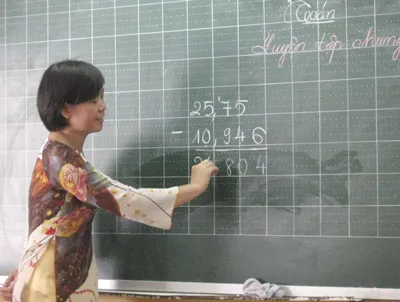 Toán
Luyện tập chung
25,75
- 10,946
804